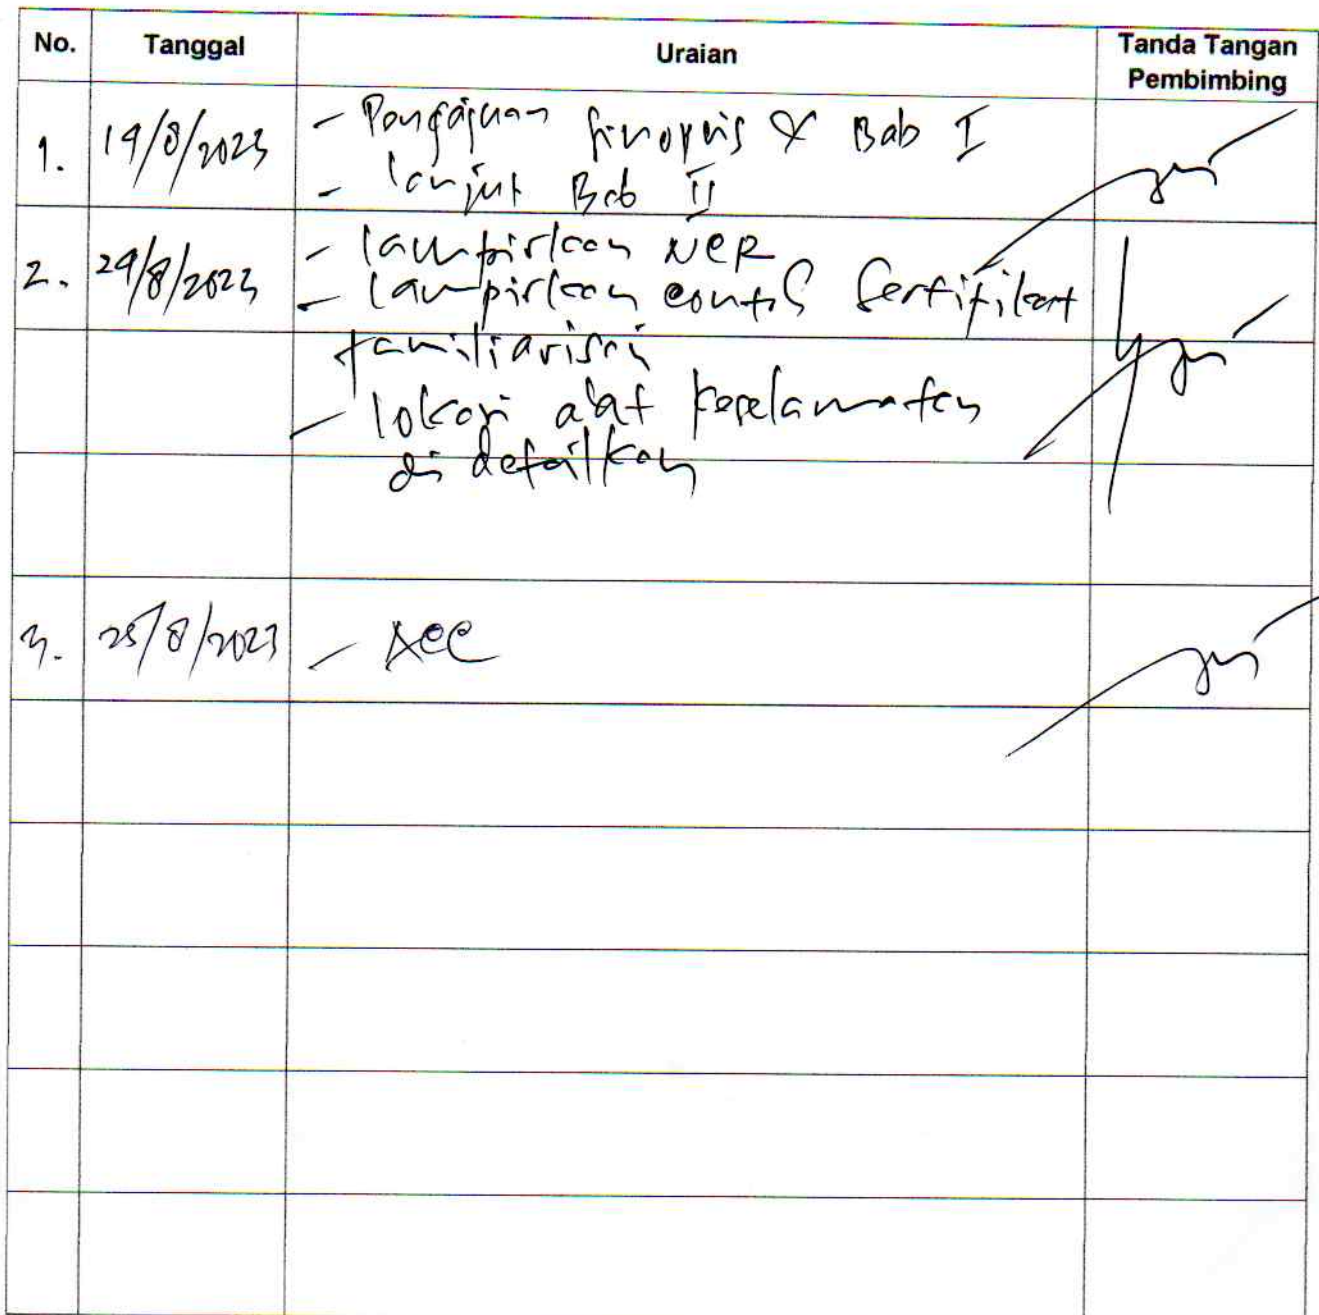 No. Tanggal Uraian Tanda Tangan Pembimbing
1. 19/8/2023 - Pengajuan sinopsis & Bab I
- lanjut Bab II
2. 24/8/2023 - lampirkan NCR
- lampirkan contoh Sertifikat
familiarisasi
- lokasi alat keselamatan
di detailkan
3. 25/8/2023 - ACC